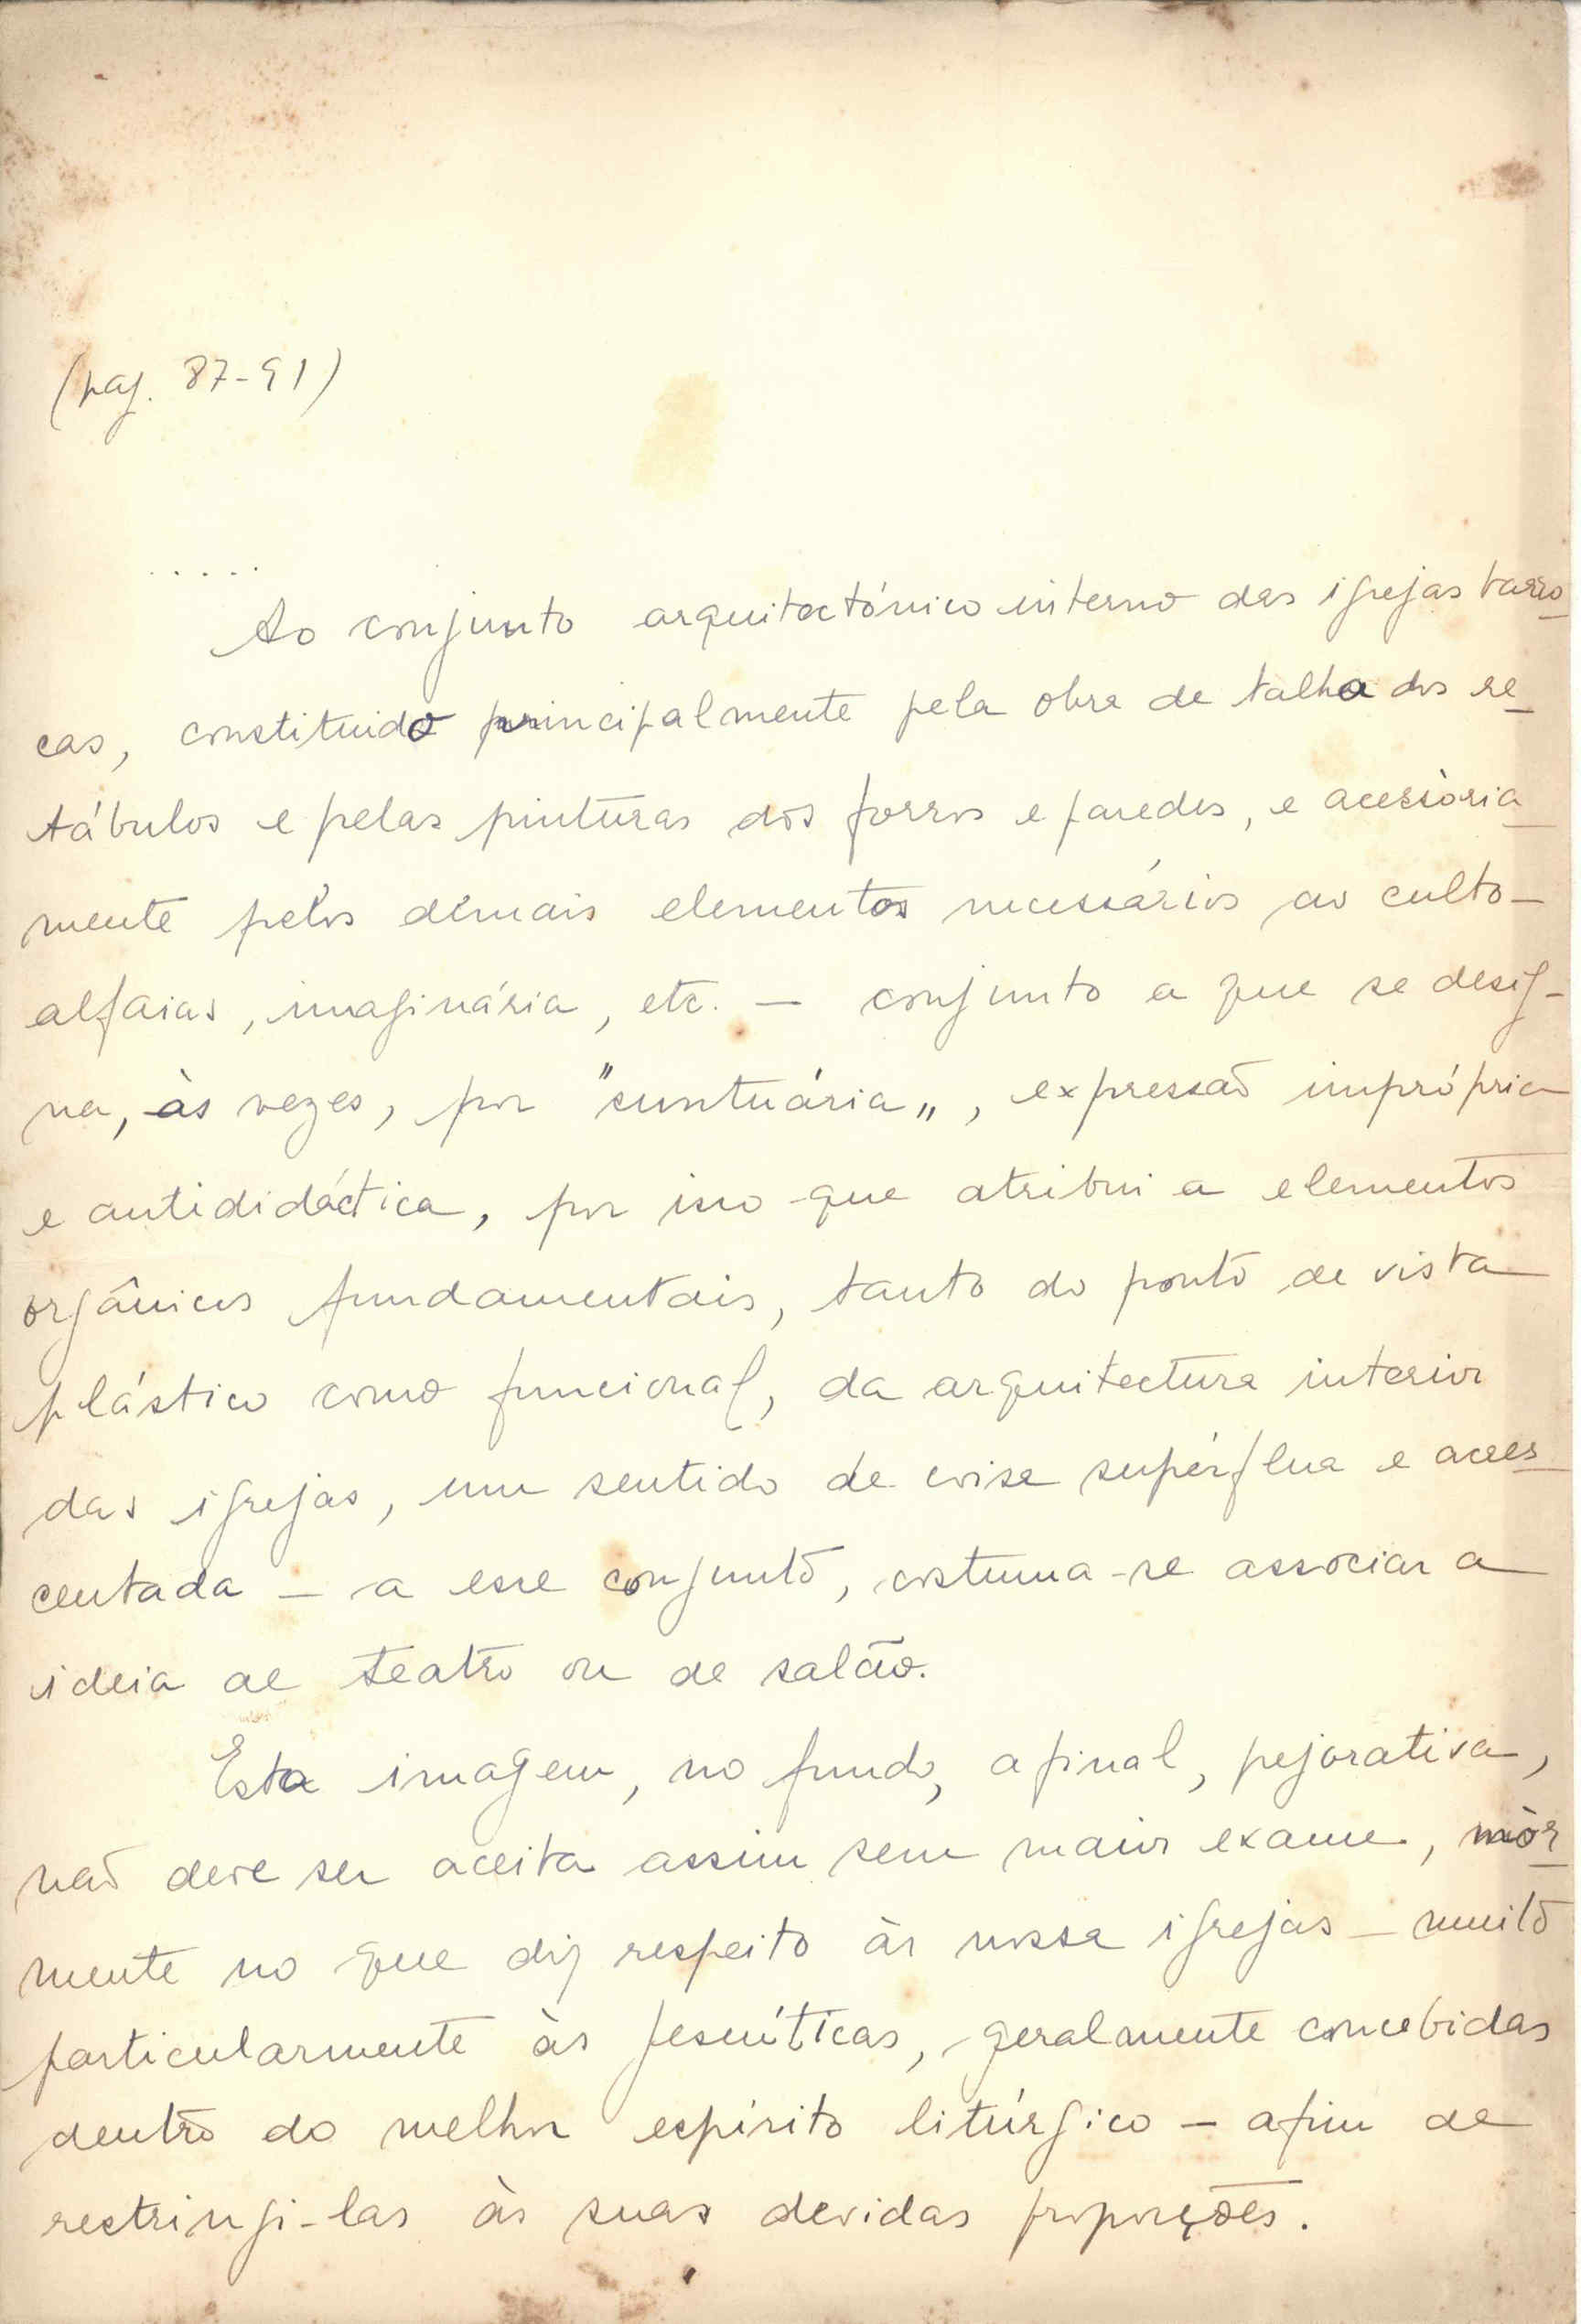 (pag. 87-91)
.....
Ao conjunto arquitectónico interno das igrejas barro
cas, constituido principalmente pela obra de talha dos re
tábulos e pelas pinturas dos forros e paredes, e acessòria
mente pelos demais elementos necessários ao culto—
alfaias, imaginária, etc. — conjunto a que se desig-
na, às vezes, por "suntuária„, expressão imprópria
e antididáctica, por isso que atribui a elementos
orgânicos fundamentais, tanto do ponto de vista
plástico como funcional, da arquitectura interior
das igrejas, um sentido de coisa supérflua e acres
centada — a esse conjunto, costuma-se associar a
ideia de teatro ou de salão.
Esta imagem, no fundo, afinal, pejorativa,
não deve ser aceita assim sem maior exame, mòr
mente no que diz respeito às nossa igrejas — muito
particularmente às jesuíticas, geralmente concebidas
dentro do melhor espírito litúrgico — afim de
restringi-las às suas devidas proporções.